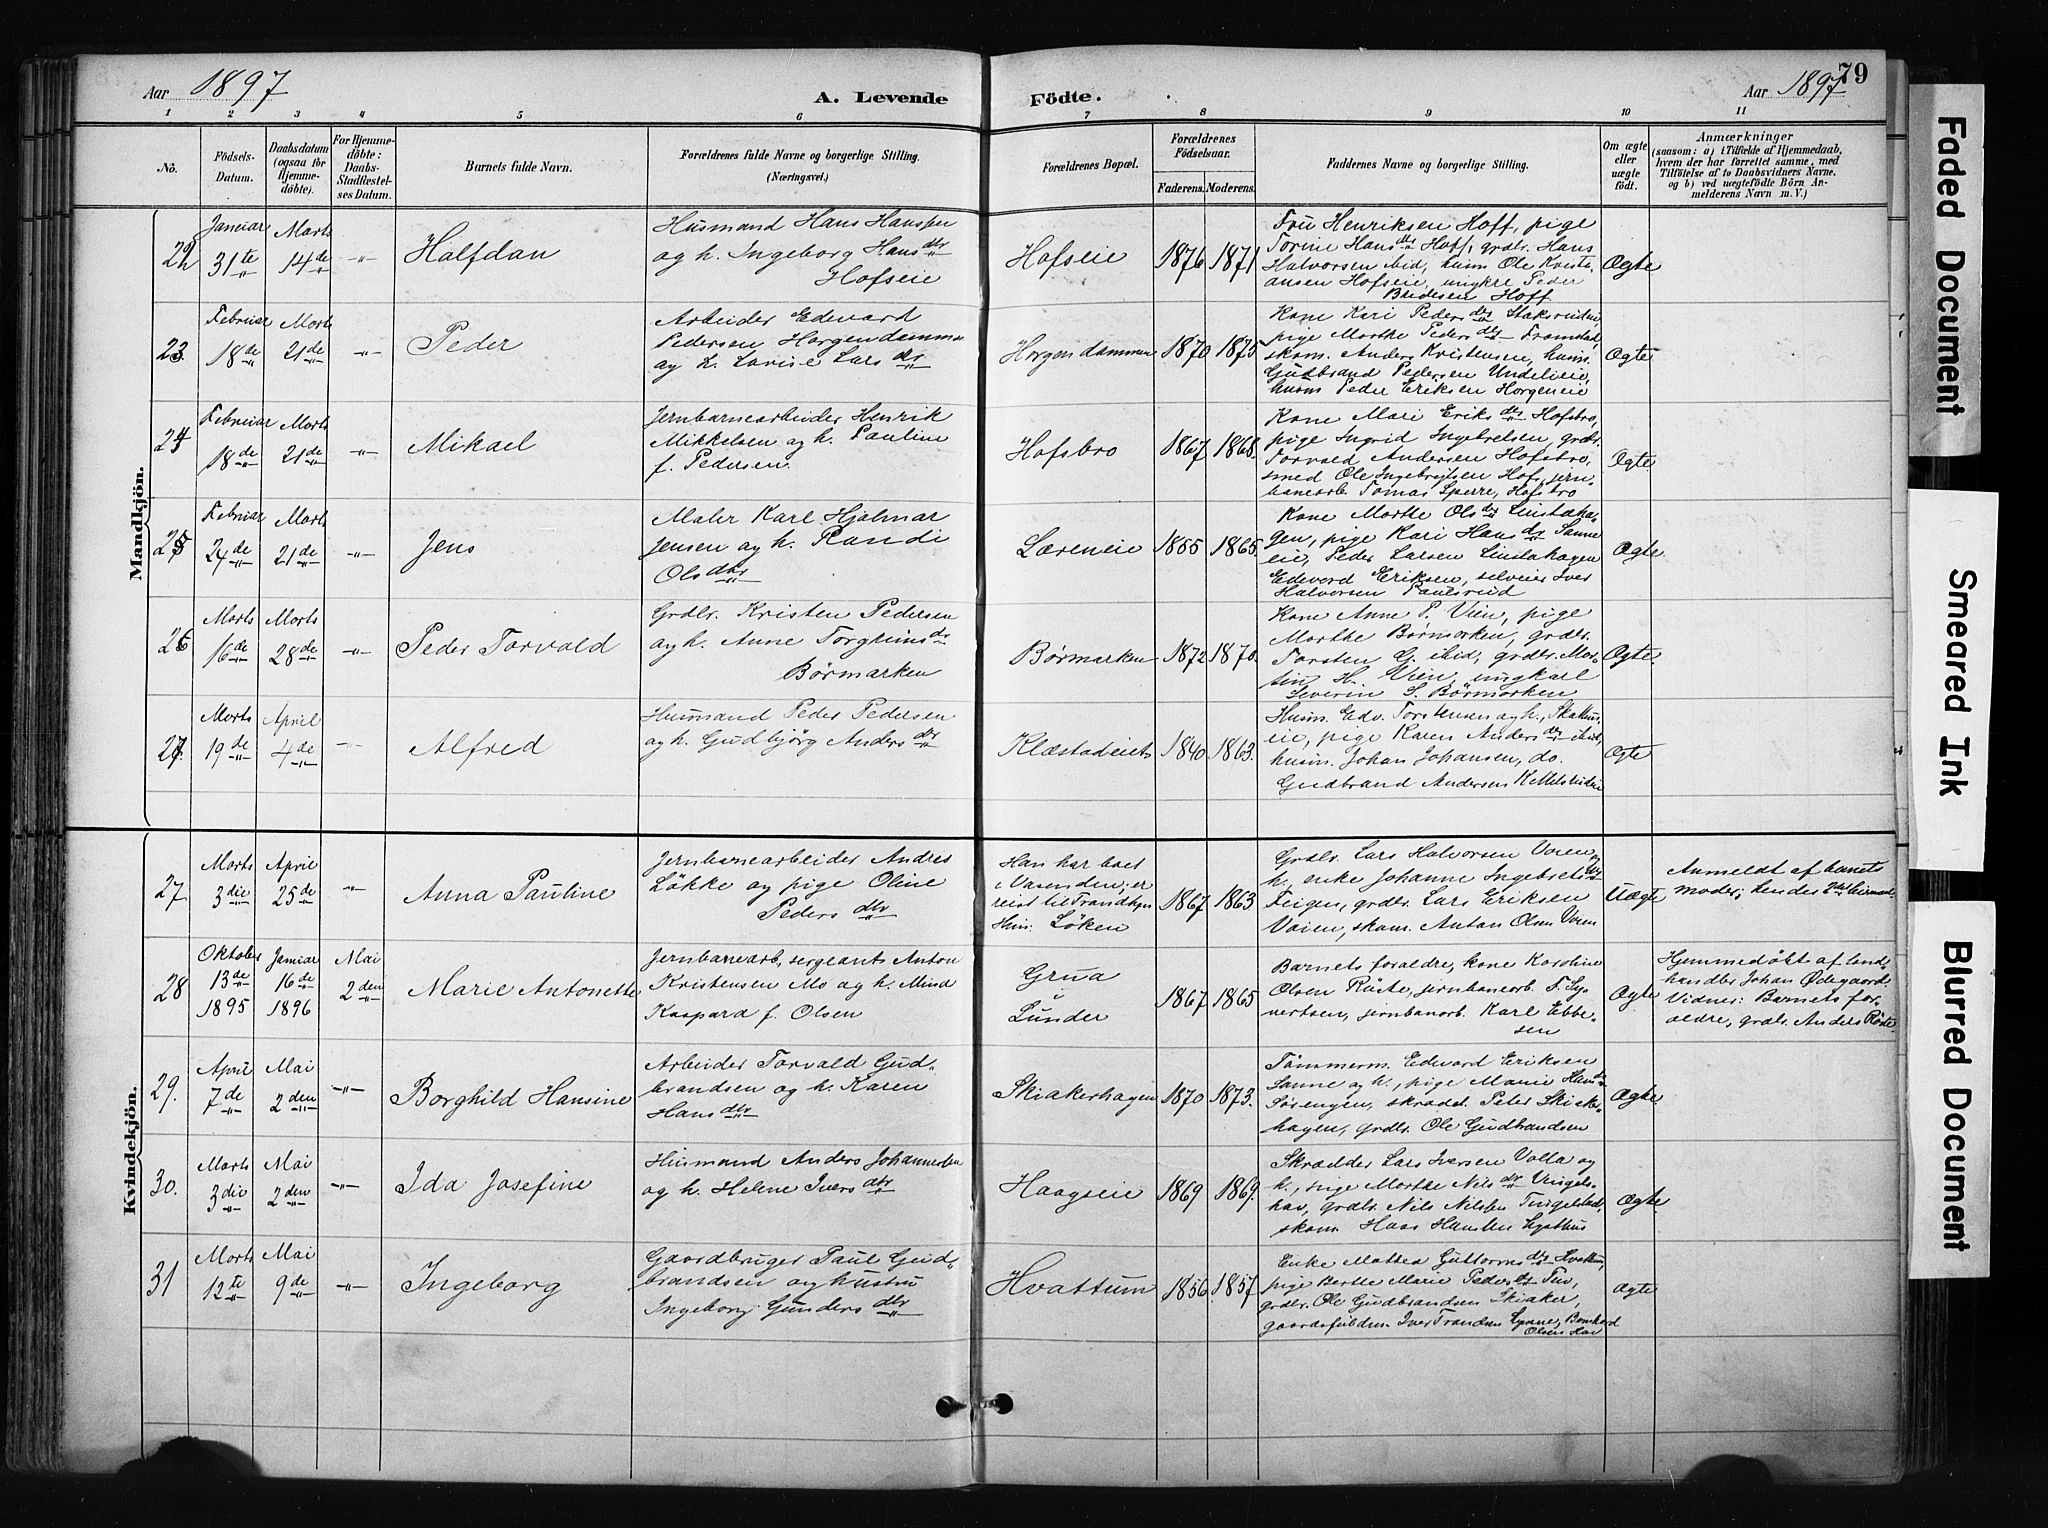 Aar 1897
A. Levende
Födte.
Aar 1897
79
1 2 3 4 5 6 7 8 9 10 11
No.
Födsels-
Datum.
Daabsdatum
(ogsaa for
Hjemme-
döbte).
For Hjemme-
döbte:
Daabs-
Stadfæstel-
ses Datum.
Barnets fulde Navn.
Forældrenes fulde Navne og borgerlige Stilling.
(Næringsvei.)
Forældrenes Bopæl.
Forældrenes
Födselsaar.
Faderens.
Moderens.
Faddernes Navne og borgerlige Stilling.
Om ægte
eller
uægte
födt.
Anmærkninger
(saasom: a) i Tilfælde af Hjemmedaab,
hvem der har forrettet samme, med
Tilföielse af to Daabsvidners Navne.
og b) ved uægtefödte Börn An-
melderens Navn m. V.)
Mandkjön.
22
Januar
31te
Marts
14de
-"-
Halfdan
Husmand Hans Hanssen
og h. Ingeborg Hansdtr
Hofseie
Hofseie
1876
1871
Fru Henriksen Hoff, pige
Torine Hansdtr Hoff, grdbr. Hans
Halvorsen ibid, husm Ole Kristi-
ansen Hofseie, ungkrl Peder
Hoff
Ægte
23
Februar
18de
Marts
21de
-"-
Peder
Arbeider Edevard
Pedersen Horgendammen
og h. Lovise Larsdtr
Horgendammen
1870
1875
Kone Kari Pedersdtr
pige Marthe Pedersdtr Framstad,
skom. Anders Kristensen, husm.
Gudbrand Pedersen Undelieie,
husm Peder Eriksen Horgeneie
Ægte
24
Februar
18de
Marts
21de
-"-
Mikael
Jernbanearbeider Henrik
Mikkelsen og h. Pauline
f. Pedersen.
Hofsbro
1867
1868.
Kone Mari Eriksdtr Hofsbro,
pige Ingrid Ingebretsen, grdbr.
Torvald Andersen Hofsbro,
smed Ole Ingebrigtsen Hof, jern-
banearb. Tomas Sperre, Hofsbro
Ægte
25
Februar
24de
Marts
21de
-"-
Jens
Maler Karl Hjalmar
Jensen og h. Randi
Olsdtr
Læreneie
1865.
Kone Marthe Olsdtr Linstaha-
gen, pige Kari Hansdtr Sanne
eie, Peder Larsen Linstahagen
Edevard Eriksen, selveier Iver
Halvorsen Paulsrud
Ægte
26
Marts
16de
Marts
28de
-"-
Peder Torvald
Grdbr. Kristen Pedersen
og h. Anne Torgrimsdr
Børmarken
Børmarken
1872
1870.
Kone Anne P. Vien, pige
Marthe Børmarken, grdbr.
Torsten G. ibid, grdbr. Mar-
tin H. Vien, ungkarl
Severin S. Børmarken
Ægte.
27.
Marts
19de
April
4de
-"-
Alfred
Husmand Peder Pedersen
og h. Gudbjörg Andersdtr
Klæstadeiet
1840
1863.
Husm. Edv. Torstensen og h.,
eie, pige Karen Andersdtr ibid,
husm. Johan Johansen, do.
Gudbrand Andersen
Ægte
Kvindekjön.
27
Marts
3die
April
25de
-"-
Anna Pauline
Jernbanearbeider Andreas
Løkke og pige Oline
Pedersdtr
Han har boet
i Vasenden; er
reist til Trondhjem
Hun: Løken
1867
1863
Grdbr. Lars Halvorsen Voien og
h, enke Johanne
Teigen, grdbr. Lars Eriksen
Voien, skom. Anton Olsen Voien
Uægte
Anmeldt af barnets
moder; hendes 2det leiermaal.
28
Oktober
13de
1895
Januar
16de
1896
Mai
2den
Marie Antonette
Jernbanearb., sergeant Anton
Kristensen Mo og h. Mina
Kaspara f. Olsen
Grua
i
Lunder
1867.
1865
Barnets forældre, kone Karoline
Olsen Røste, jernbanearb. S. Sy-
vertsen, jernbanarb. Karl Ebbe-
sen
Ægte
Hjemmedøbt af land-
handler Johan Ødegaard.
Vidner: Barnets for-
ældre, grdbr. Anders Røste
29.
April
7de
Mai
2den
-"-
Borghild Hansine
Arbeider Torvald Gud-
brandsen og h. Karen
Hansdtr
Skiakerhagen
1870
1873.
Tømmerm. Edvard Eriksen
Sanne og h., pige Marie Hansdr
Sørengen, skræd. Peter Skiaker-
hagen, grdbr. Ole Gudbrandsen
Ægte.
30.
Marts
3die
Mai
2den
-"-
Ida Josefine
Husmand Anders Johannessen
og h. Helene Iversdtr
Haagseie
1869
1869.
Skrædder Lars Iversen Volla og
h., pige Marthe Nilsdtr Vingels-
hav, grdbr. Nils Nilsen Tingelstad,
skom. Hans Hansen
Ægte
31
Marts
12te
Mai
9de
-"-
Ingeborg
Gaardbruger Paul Gud-
brandsen og hustru
Ingeborg Gundersdtr
Hvattum
1856
1857.
Enke Mathea Guttormsdtr Hvattum,
pige Berthe Marie Pedersdtr
grdbr. Ole Gudbrandsen Skiaker,
Ægte
Faded Document
Smeared Ink
Blurred Document